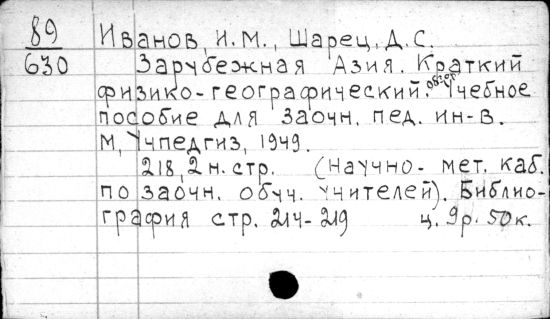 89
630
Иванов, И. М., Шарец, Д. С.
Зарубежная Азия. Краткий
физико-географический обзор. Учебное
пособие для заочн. пед. ин-в.
М, Учпедгиз, 1949.
218, 2 н. стр. (Научно- мет. каб.
по заочн. обуч. учителей). Библио-
графия стр. 214-219 ц. 9р. 50к.